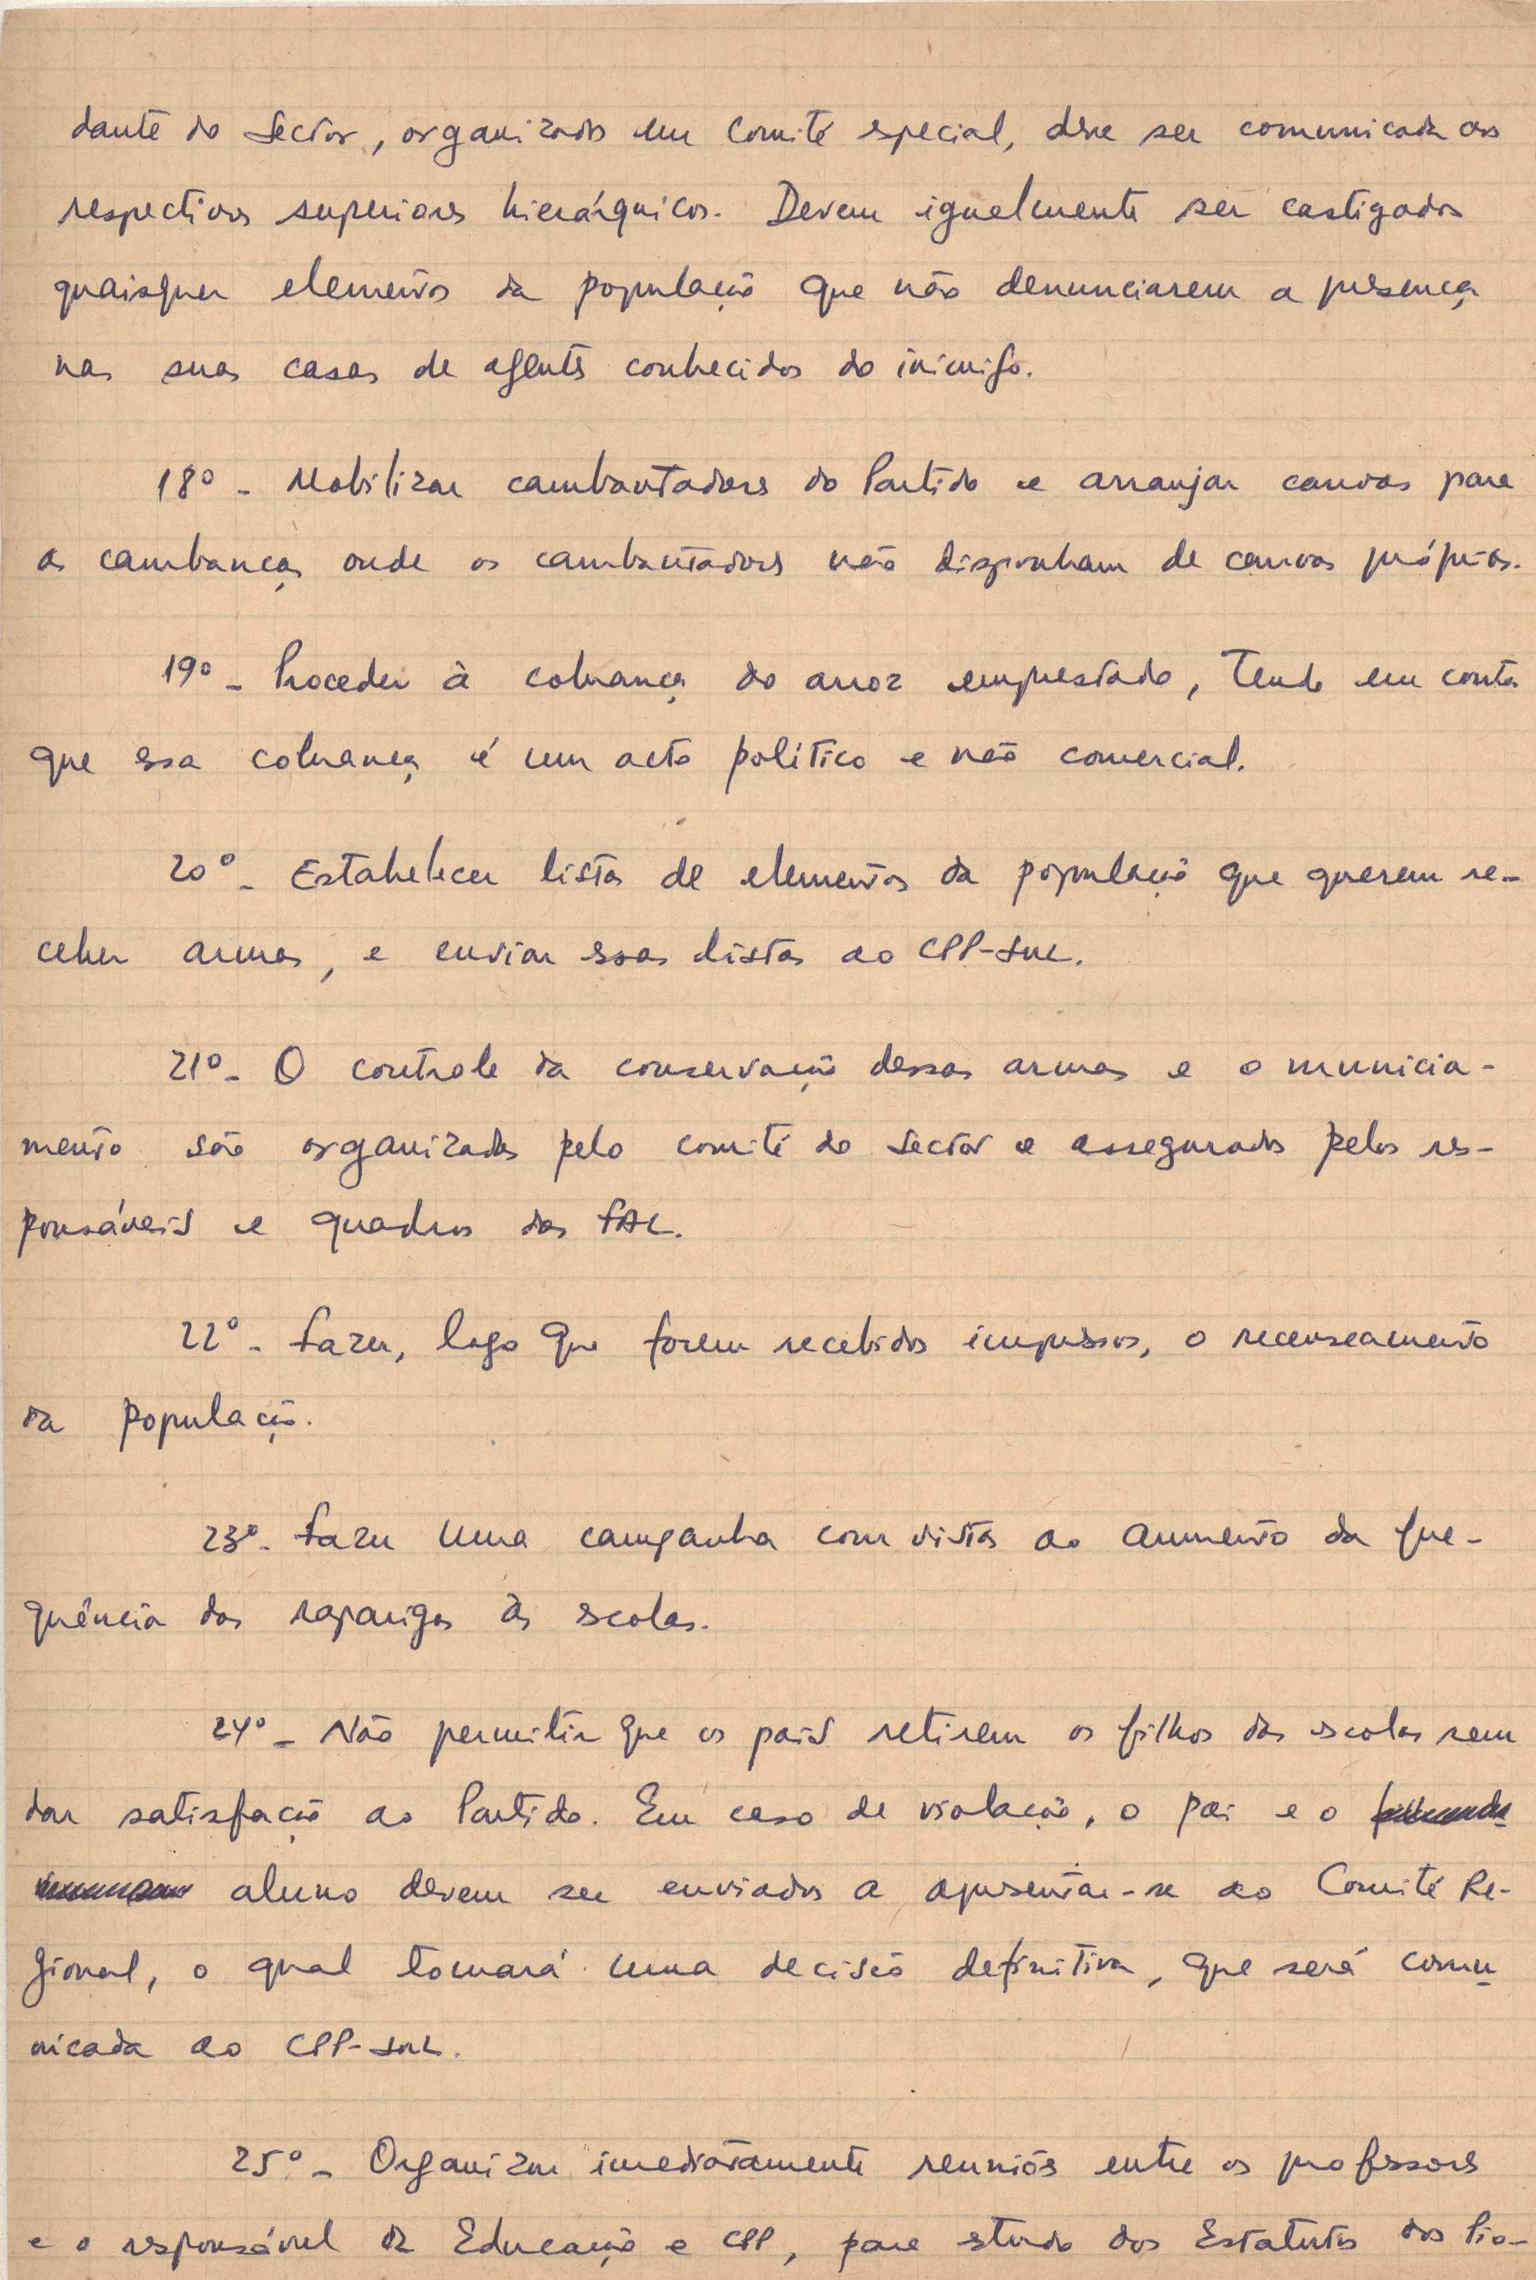 dante do Sector, organizado em Comité especial, deve ser comunicada aos
respectivos superiores hierárquicos. Devem igualmente ser castigados
quaisquer elementos da população que não denunciarem a presença
nas suas casas de agentes conhecidos do inimigo.
18º - Mobilizar cambantadores do Partido e arranjar canoas para
as cambanças onde os cambantadores não disponham de canoas próprias.
19º - Proceder à cobrança do arroz emprestado, tendo em conta
que essa cobrança é um acto político e não comercial.
20º - Estabelecer listas de elementos da população que querem re-
ceber armas, e enviar essas listas ao CPP-Sul.
21º - O controle da conservação dessas armas e o municia-
mento são organizados pelo comité do Sector e assegurados pelos res-
ponsáveis e quadros das FAL.
22º - Fazer, logo que forem recebidos impressos, o recenseamento
da população.
23º - Fazer uma campanha com vistas ao aumento da fre-
quência das raparigas às escolas.
24º - Não permitir que os pais retirem os filhos das escolas sem
dar satisfação ao Partido. Em caso de violação, o pai e o
aluno devem ser enviados a apresentar-se ao Comité Re-
gional, o qual tomará uma decisão definitiva, que será comu-
nicada ao CPP-Sul.
25º - Organizar imediatamente reuniões entre os professores
e o responsável da Educação e CPP, para estudo dos Estatutos dos Pio-